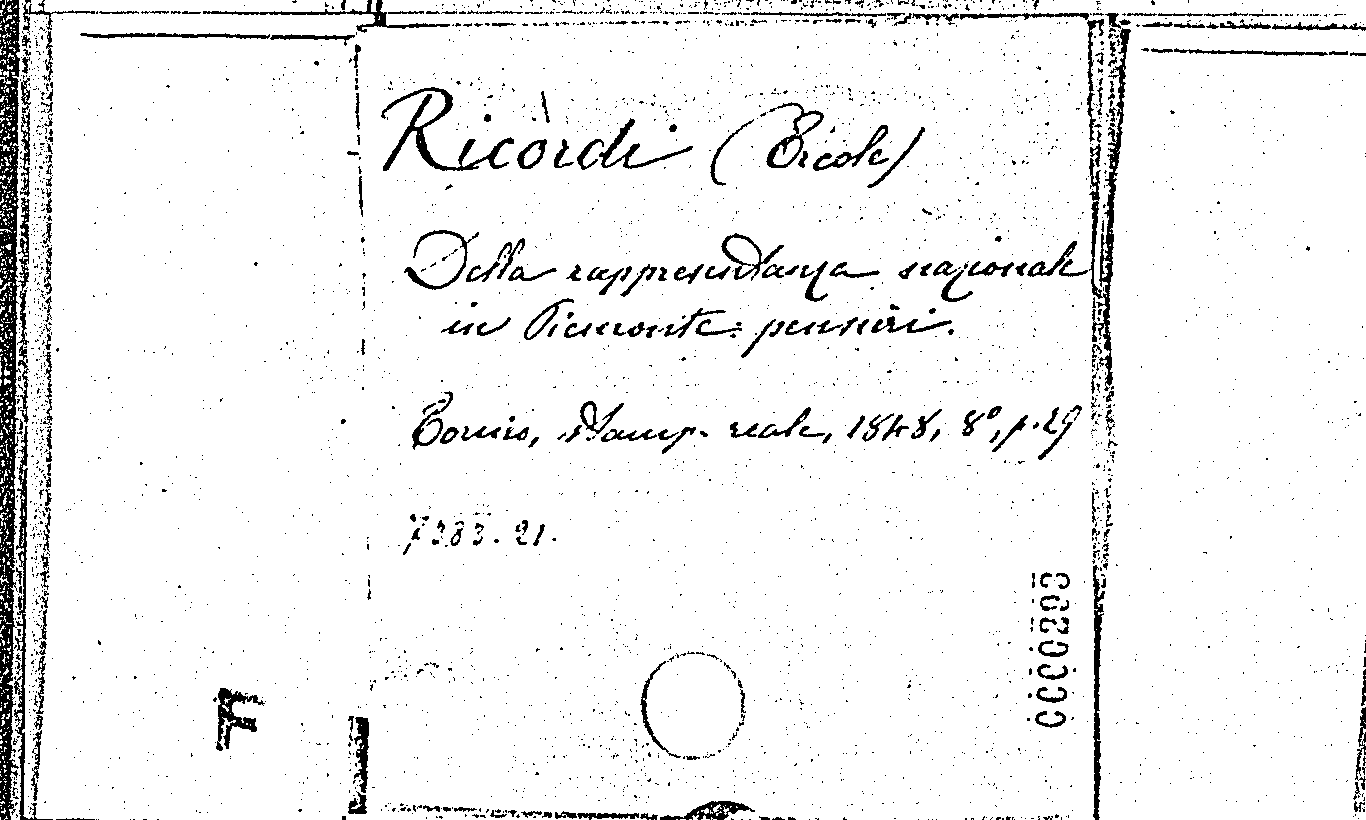 Ricordi (Ercole)
Della rappresentanza nazionale
in Piemonte: pensieri.
Torino, stamp. reale, 1848, 8°, p. 29
7383.21.
0000293
F